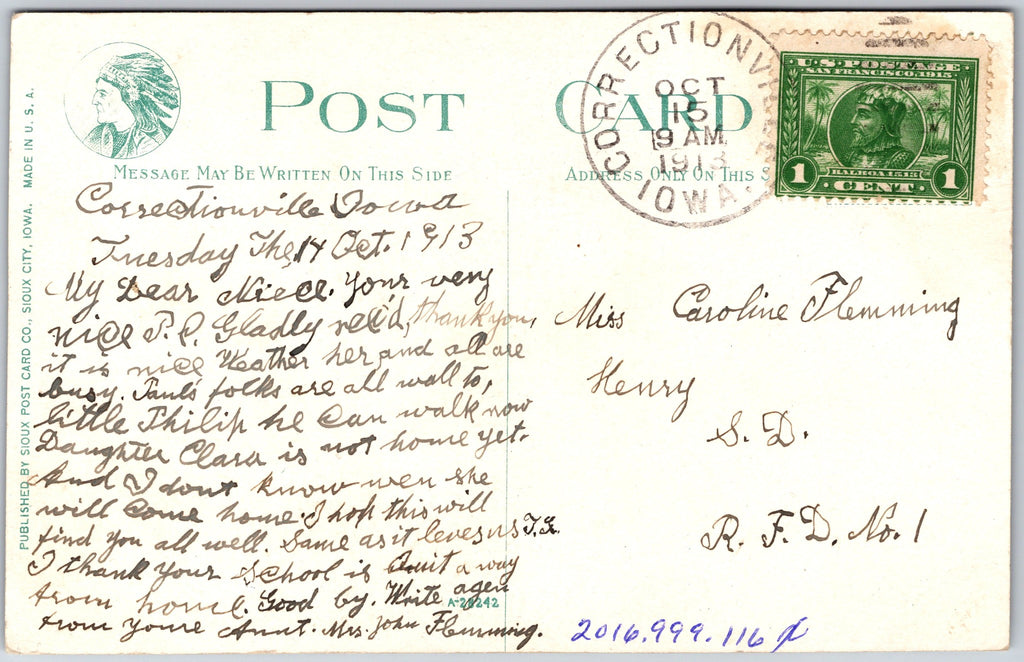 POST CARD
MESSAGE MAY BE WRITTEN ON THIS SIDE
ADDRESS ONLY ON THIS S
PUBLISHED BY SIOUX POST CARD CO., SIOUX CITY, IOWA. MADE IN U. S. A.
CORRECTIONVILLE
OCT
15
9 AM
1913
IOWA.
U.S. POSTAGE
SAN FRANCISCO, 1915
BALBOA 1513
1 CENT 1
Correctionville Iowa
Tuesday The 14 Oct. 1913
My Dear Niece. Your very
nice P.C. Gladly rec'd, thank you,
it is nice Weather her and all are
busy. Paul's folks are all wall to,
little Philip he can walk now
Daughter Clara is not home yet.
And I dont know wen she
will come home. I hop this will
find you all well. Same as it leves us T.G.
I thank your School is Quit a way
from home. Good by. Write agen
from youre Aunt. Mrs. John Flemming.
A-28242
Miss Caroline Flemming
Henry
S. D.
R. F. D. No. 1
2016.999.116